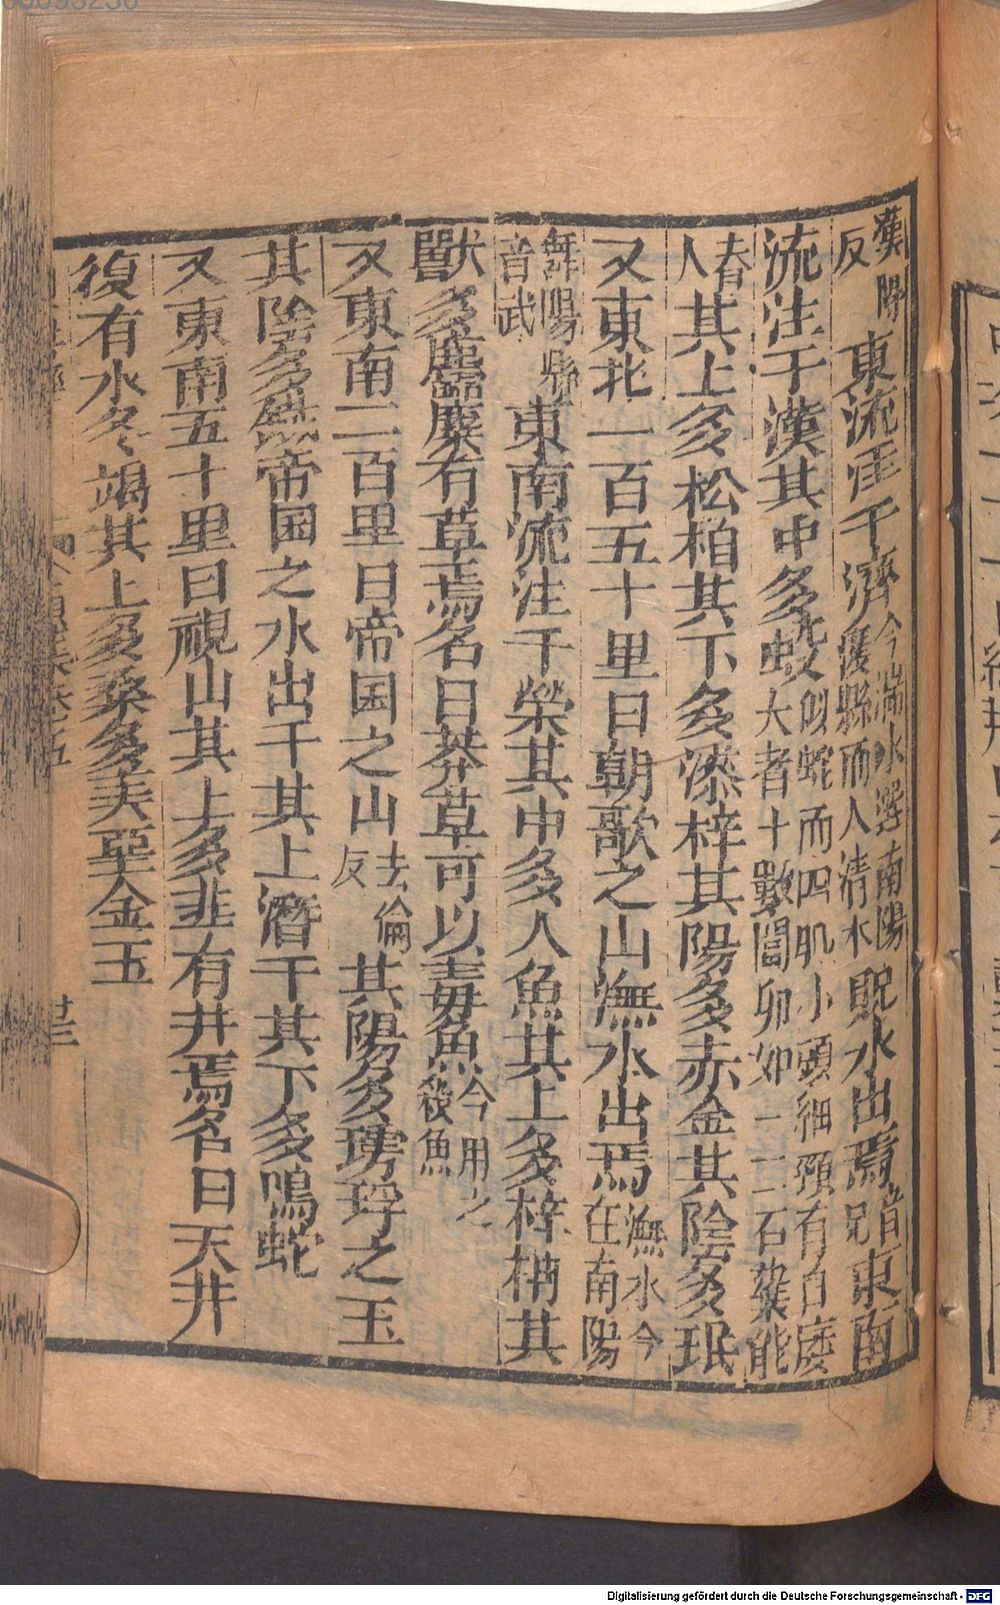 漢鄧反東流注于濟今湍水逕南陽穰縣而入清水貺水出焉音兄東南
流注于漢其中多蛟似蛇而四肌小頭細頸有白癭大者十數圍卵如一二石瓮能
吞人其上多松柏其下多漆梓其陽多赤金其陰多珉
又東北一百五十里曰朝歌之山潕水出焉潕水今在南陽
舞陽縣音武東南流注于滎其中多人魚其上多梓枬其
獸多麢麋有草焉名曰莽草可以毒魚今用之殺魚
又東南二百里曰帝囷之山去倫反其陽多㻬琈之玉
其陰多鐵帝囷之水出于其上潛于其下多鳴蛇
又東南五十里曰視山其上多韭有井焉名曰天井
復有水冬竭其上多桑多美堊金玉
廿三
Digitalisierung gefördert durch die Deutsche Forschungsgemeinschaft - DFG